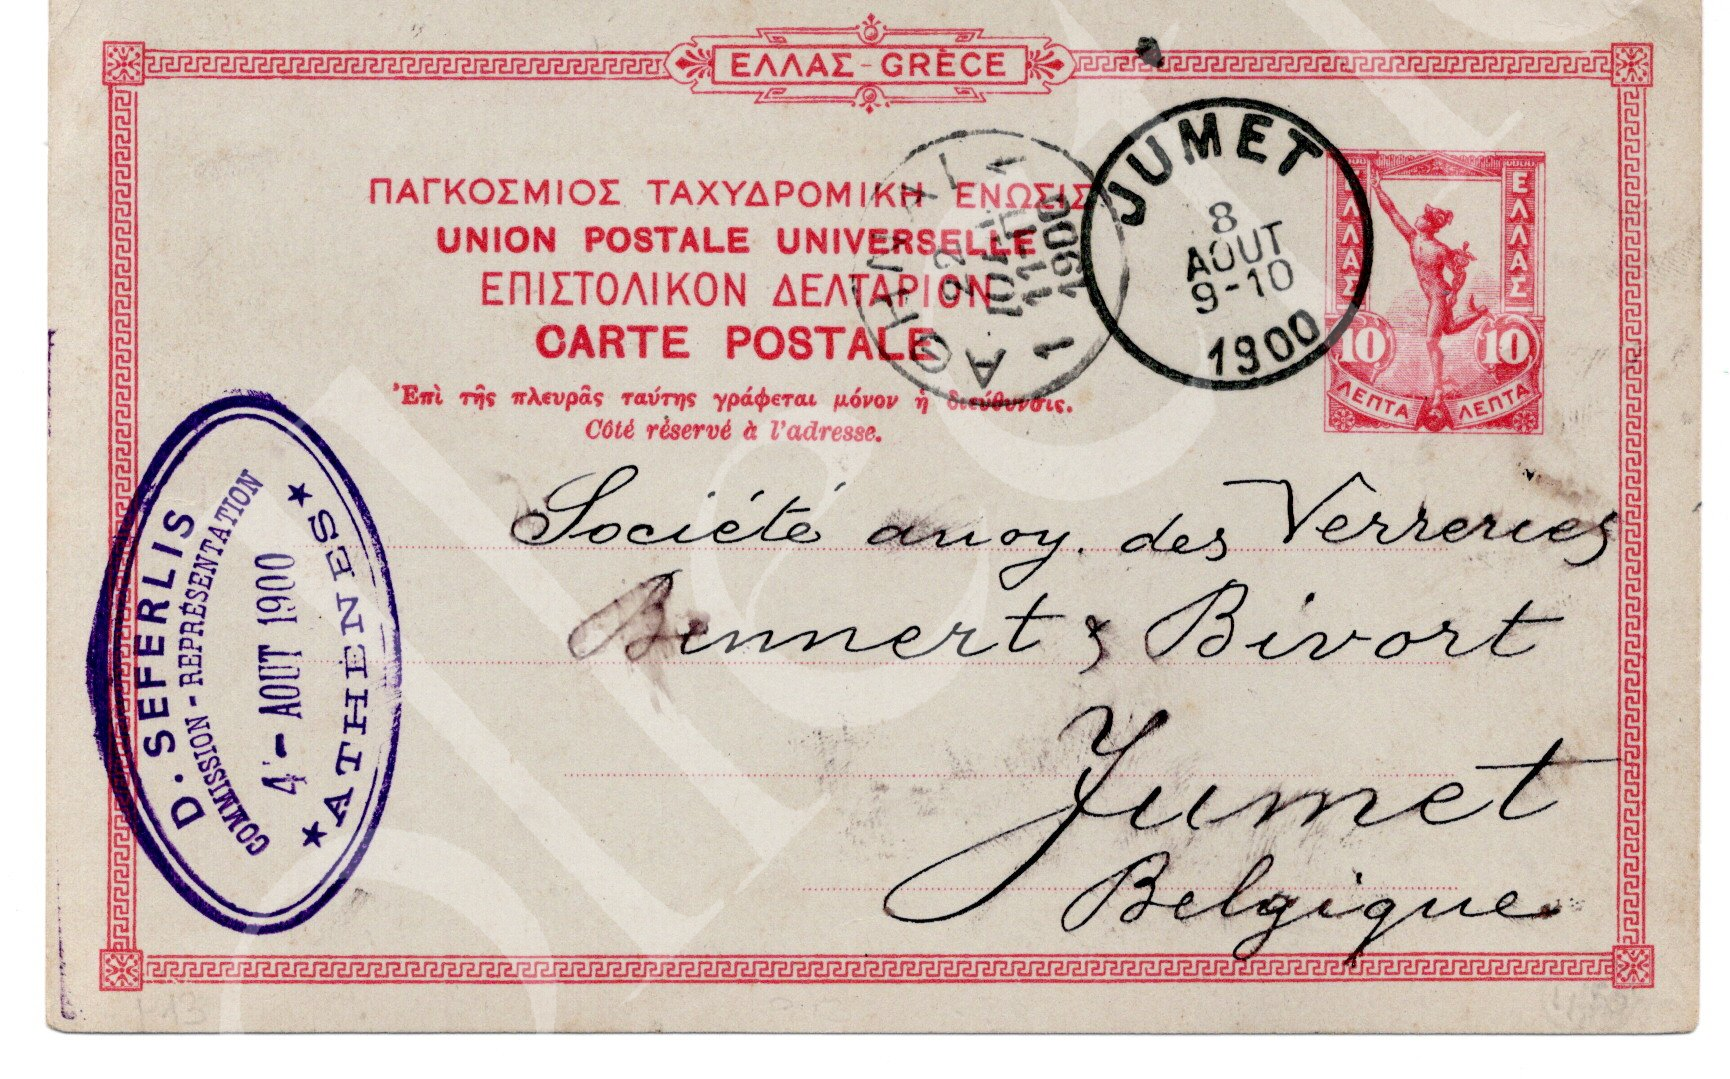 ΕΛΛΑΣ - GRÈCE
ΠΑΓΚΟΣΜΙΟΣ ΤΑΧΥΔΡΟΜΙΚΗ ΕΝΩΣΙΣ
UNION POSTALE UNIVERSELLE
ΕΠΙΣΤΟΛΙΚΟΝ ΔΕΛΤΑΡΙΟΝ
CARTE POSTALE
Ἐπὶ τῆς πλευρᾶς ταύτης γράφεται μόνον ἡ διεύθυνσις.
Côté réservé à l'adresse.
JUMET
8
AOUT
9-10
1900
ΕΛΛΑΣ
ΕΛΛΑΣ
10
10
ΛΕΠΤΑ
ΛΕΠΤΑ
22
1900
D. SEFERLIS
COMMISSION - REPRÉSENTATION
4 - AOUT 1900
★ ATHENES ★
Société anoy. des Verreries
Bennert & Bivort
Jumet
Belgique